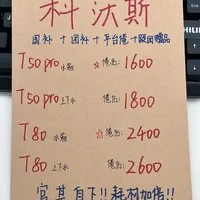 科沃斯
国补+团补+平台卷+跟团赠品
T50 pro 水箱 ☆卷后:1600
T50 pro 上下水 卷后:1800
T80 水箱 ☆卷后:2400
T80 上下水 卷后:2600
官其自下!!耗材加售!!
PHILIPS